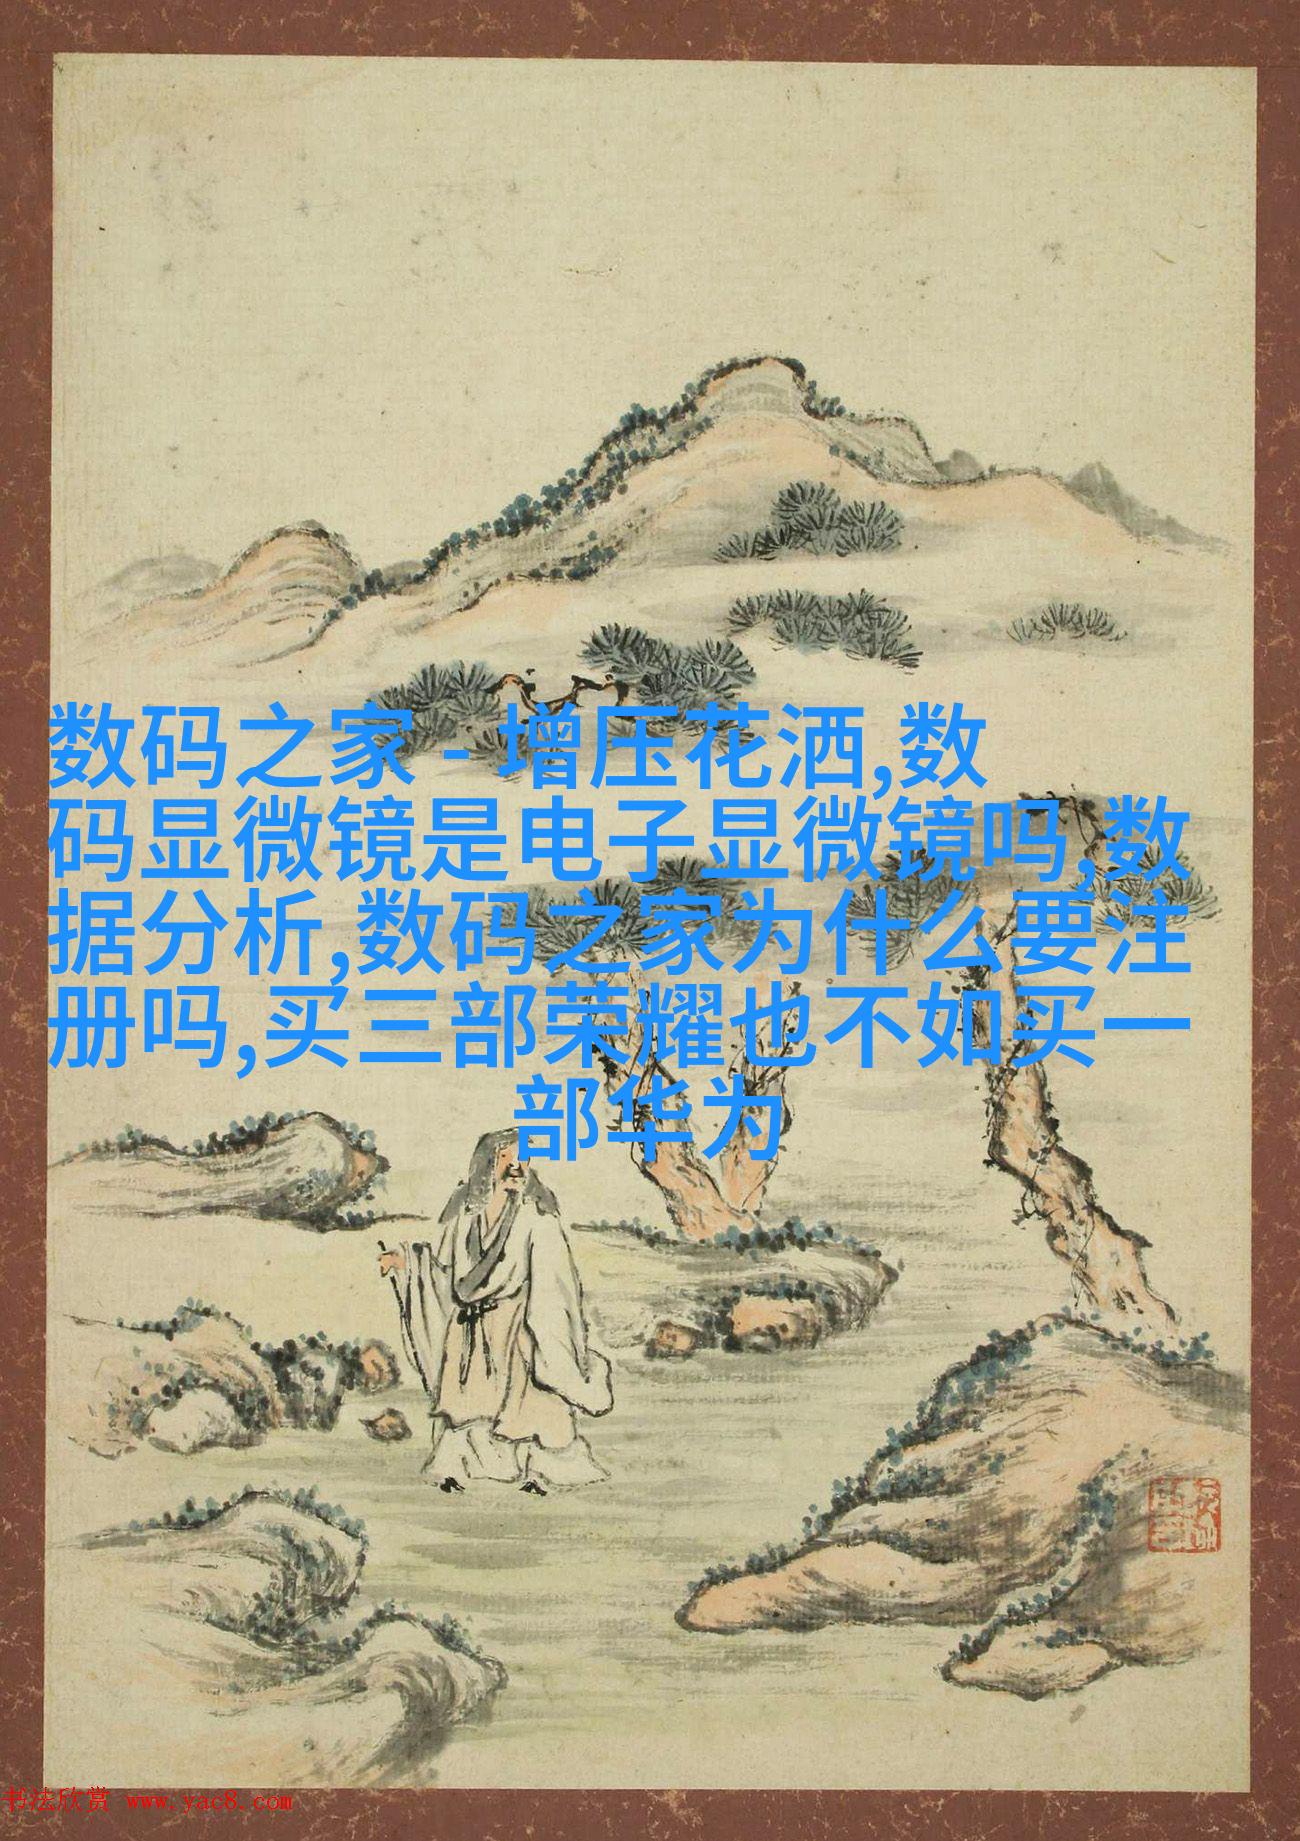 数码之家 - 增压花洒,数
码显微镜是电子显微镜吗,数
据分析,数码之家为什么要注
册吗,买三部荣耀也不如买一
部华为
书法欣赏 www.yac8.com